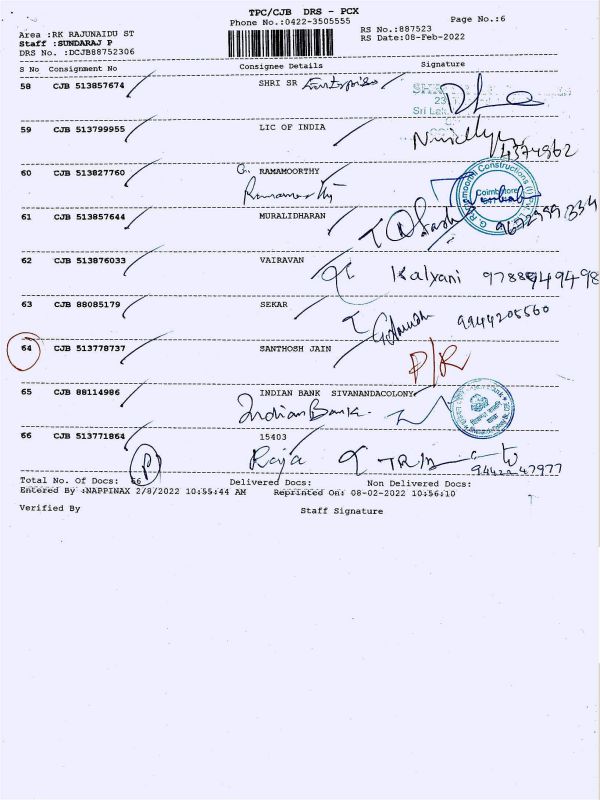 TPC/CJB DRS - PCX
Phone No.:0422-3505555 Page No.:6
Area :RK RAJUNAIDU ST RS No.:887523
Staff :SUNDARAJ P RS Date:08-Feb-2022
DRS No. :DCJB88752306
S No Consignment No Consignee Details Signature
58 CJB 513857674 SHRI SR Enterprises
59 CJB 513799955 LIC OF INDIA
60 CJB 513827760 G. RAMAMOORTHY
Ramamoorthy
Coimbatore
61 CJB 513857644 MURALIDHARAN
62 CJB 513876033 VAIRAVAN
Kalyani
63 CJB 88085179 SEKAR
9944205560
64 CJB 513778737 SANTHOSH JAIN D/R
65 CJB 88114986 INDIAN BANK SIVANANDACOLONY
Indian Bank
66 CJB 513771864 15403
P Raja
Total No. Of Docs: 66 Delivered Docs: Non Delivered Docs:
Entered By :NAPPINAX 2/8/2022 10:55:44 AM Reprinted On: 08-02-2022 10:56:10
Verified By Staff Signature